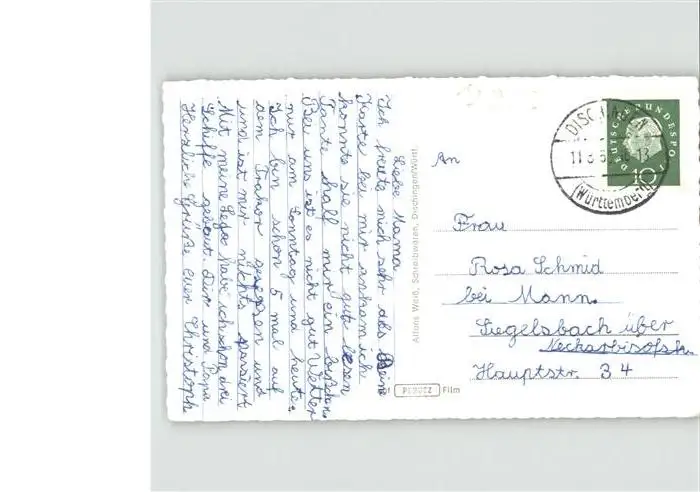 Liebe Mama
Ich freute mich sehr als Deine
Karte bei mir ankam ich
konnte sie nicht gut lesen
Tante half mir ein bischen.
Bei uns ist es nicht gut Wetter
nur am Sonntag und heute.
Ich bin schon 5 mal auf
dem Traktor gesessen und
und ist mir nichts passiert
Mit meine Lego habe ich schon drei
Schiffe gebaut. Dir und Papa
Herzliche Grüße euer Christoph
Alfons Weiß, Schreibwaren, Dischingen/Württ.
PERUTZ Film
DEUTSCHE BUNDESPOST
10
DISCHINGEN
11.8.
(Württemberg)
An
Frau
Rosa Schmid
bei Mann.
Siegelsbach über
Neckarbisofsh.
Hauptstr. 34